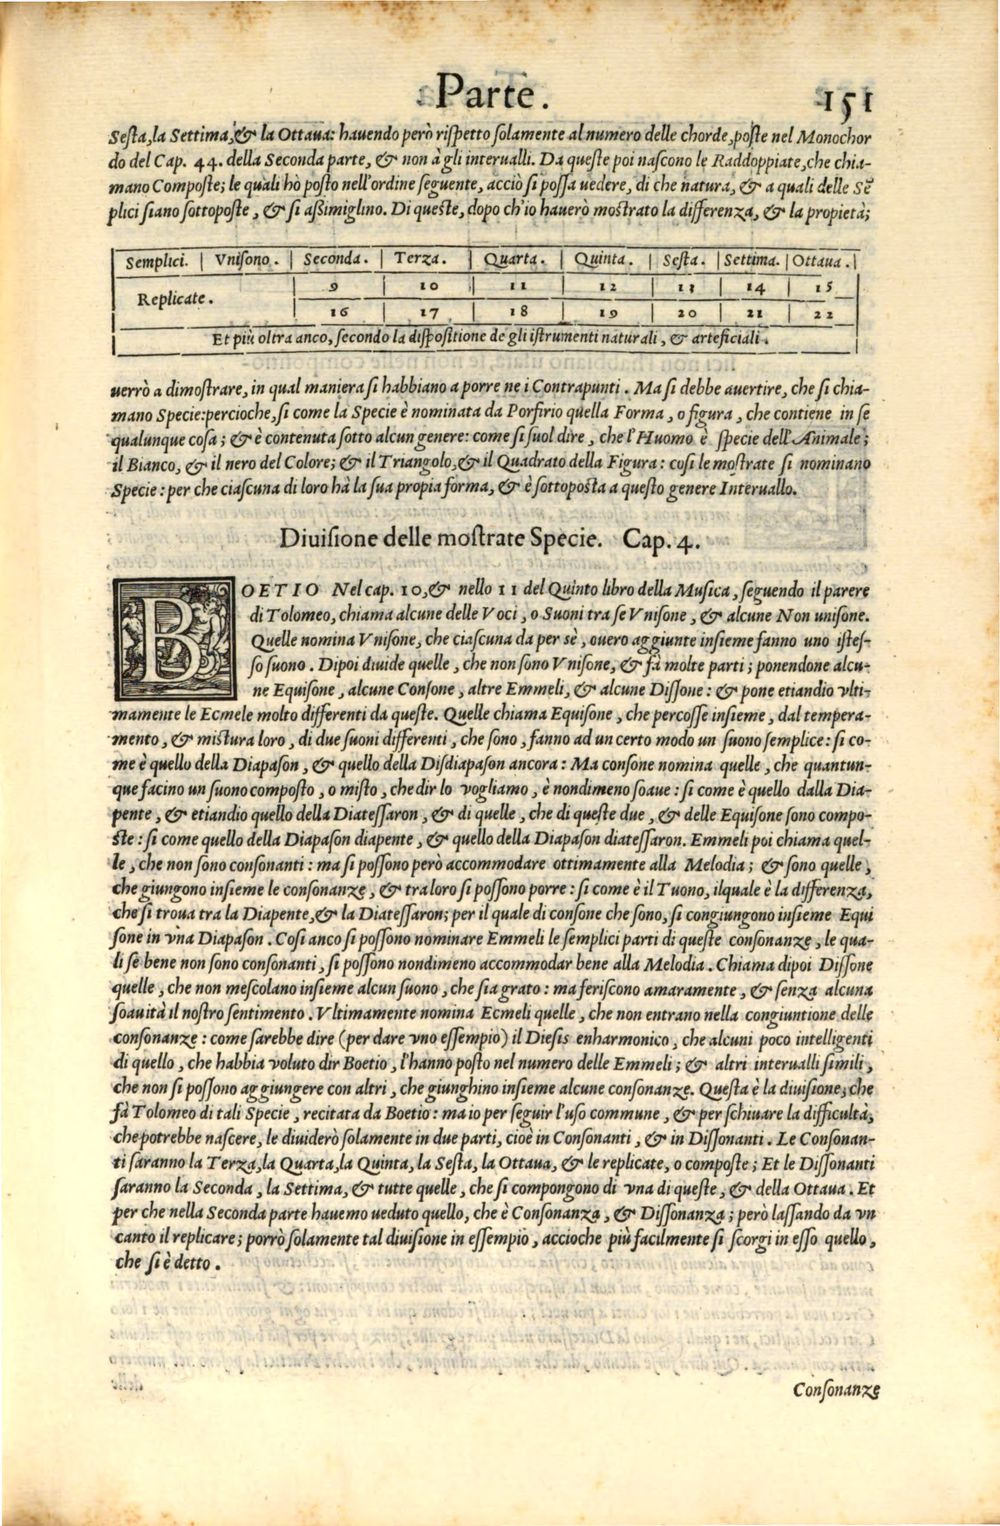 Parte.
151
Sesta, la Settima, & la Ottaua: hauendo però rispetto solamente al numero delle chorde, poste nel Monochor
do del Cap. 44. della Seconda parte, & non à gli interualli. Da queste poi nascono le Raddoppiate, che chia-
mano Composte; le quali hò posto nell'ordine seguente, acciò si possa uedere, di che natura, & a quali delle Sē
plici siano sottoposte, & si aßimiglino. Di queste, dopo ch'io hauerò mostrato la differenza, & la propietà;
Semplici. | Vnisono. | Seconda. | Terza. | Quarta. | Quinta. | Sesta. | Settima. | Ottaua. |
Replicate. | 9 | 10 | 11 | 12 | 13 | 14 | 15
16 | 17 | 18 | 19 | 20 | 21 | 22
Et più oltra anco, secondo la dispositione de gli istrumenti naturali, & arteficiali.
uerrò a dimostrare, in qual maniera si habbiano a porre ne i Contrapunti. Ma si debbe auertire, che si chia-
mano Specie: percioche, si come la Specie è nominata da Porfirio quella Forma, o figura, che contiene in se
qualunque cosa; & è contenuta sotto alcun genere: come si suol dire, che l'Huomo è specie dell'Animale;
il Bianco, & il nero del Colore; & il Triangolo, & il Quadrato della Figura: cosi le mostrate si nominano
Specie: per che ciascuna di loro hà la sua propia forma, & è sottoposta a questo genere Interuallo.
Diuisione delle mostrate Specie. Cap. 4.
BOETIO Nel cap. 10, & nello 11 del Quinto libro della Musica, seguendo il parere
di Tolomeo, chiama alcune delle Voci, o Suoni tra se Vnisone, & alcune Non unisone.
Quelle nomina Vnisone, che ciascuna da per sè, ouero aggiunte insieme fanno uno istes-
so suono. Dipoi diuide quelle, che non sono Vnisone, & fà molte parti; ponendone alcu-
ne Equisone, alcune Consone, altre Emmeli, & alcune Dissone: & pone etiandio vlti-
mamente le Ecmele molto differenti da queste. Quelle chiama Equisone, che percosse insieme, dal tempera-
mento, & mistura loro, di due suoni differenti, che sono, fanno ad un certo modo un suono semplice: si co-
me è quello della Diapason, & quello della Disdiapason ancora: Ma consone nomina quelle, che quantun-
que facino un suono composto, o misto, che dir lo vogliamo, è nondimeno soaue: si come è quello dalla Dia-
pente, & etiandio quello della Diatessaron, & di quelle, che di queste due, & delle Equisone sono compo-
ste: si come quello della Diapason diapente, & quello della Diapason diatessaron. Emmeli poi chiama quel-
le, che non sono consonanti: ma si possono però accommodare ottimamente alla Melodia; & sono quelle,
che giungono insieme le consonanze, & tra loro si possono porre: si come è il Tuono, ilquale è la differenza,
che si troua tra la Diapente, & la Diatessaron; per il quale di consone che sono, si congiungono insieme Equi
sone in vna Diapason. Cosi anco si possono nominare Emmeli le semplici parti di queste consonanze, le qua-
li se bene non sono consonanti, si possono nondimeno accommodar bene alla Melodia. Chiama dipoi Dissone
quelle, che non mescolano insieme alcun suono, che sia grato: ma feriscono amaramente, & senza alcuna
soauità il nostro sentimento. Vltimamente nomina Ecmeli quelle, che non entrano nella congiuntione delle
consonanze: come sarebbe dire (per dare vno essempio) il Diesis enharmonico, che alcuni poco intelligenti
di quello, che habbia voluto dir Boetio, l'hanno posto nel numero delle Emmeli; & altri interualli simili,
che non si possono aggiungere con altri, che giunghino insieme alcune consonanze. Questa è la diuisione, che
fà Tolomeo di tali Specie, recitata da Boetio: ma io per seguir l'uso commune, & per schiuare la difficultà,
che potrebbe nascere, le diuiderò solamente in due parti, cioè in Consonanti, & in Dissonanti. Le Consonan-
ti saranno la Terza, la Quarta, la Quinta, la Sesta, la Ottaua, & le replicate, o composte; Et le Dissonanti
saranno la Seconda, la Settima, & tutte quelle, che si compongono di vna di queste, & della Ottaua. Et
per che nella Seconda parte hauemo ueduto quello, che è Consonanza, & Dissonanza; però lassando da vn
canto il replicare; porrò solamente tal diuisione in essempio, accioche più facilmente si scorgi in esso quello,
che si è detto.
Consonanze